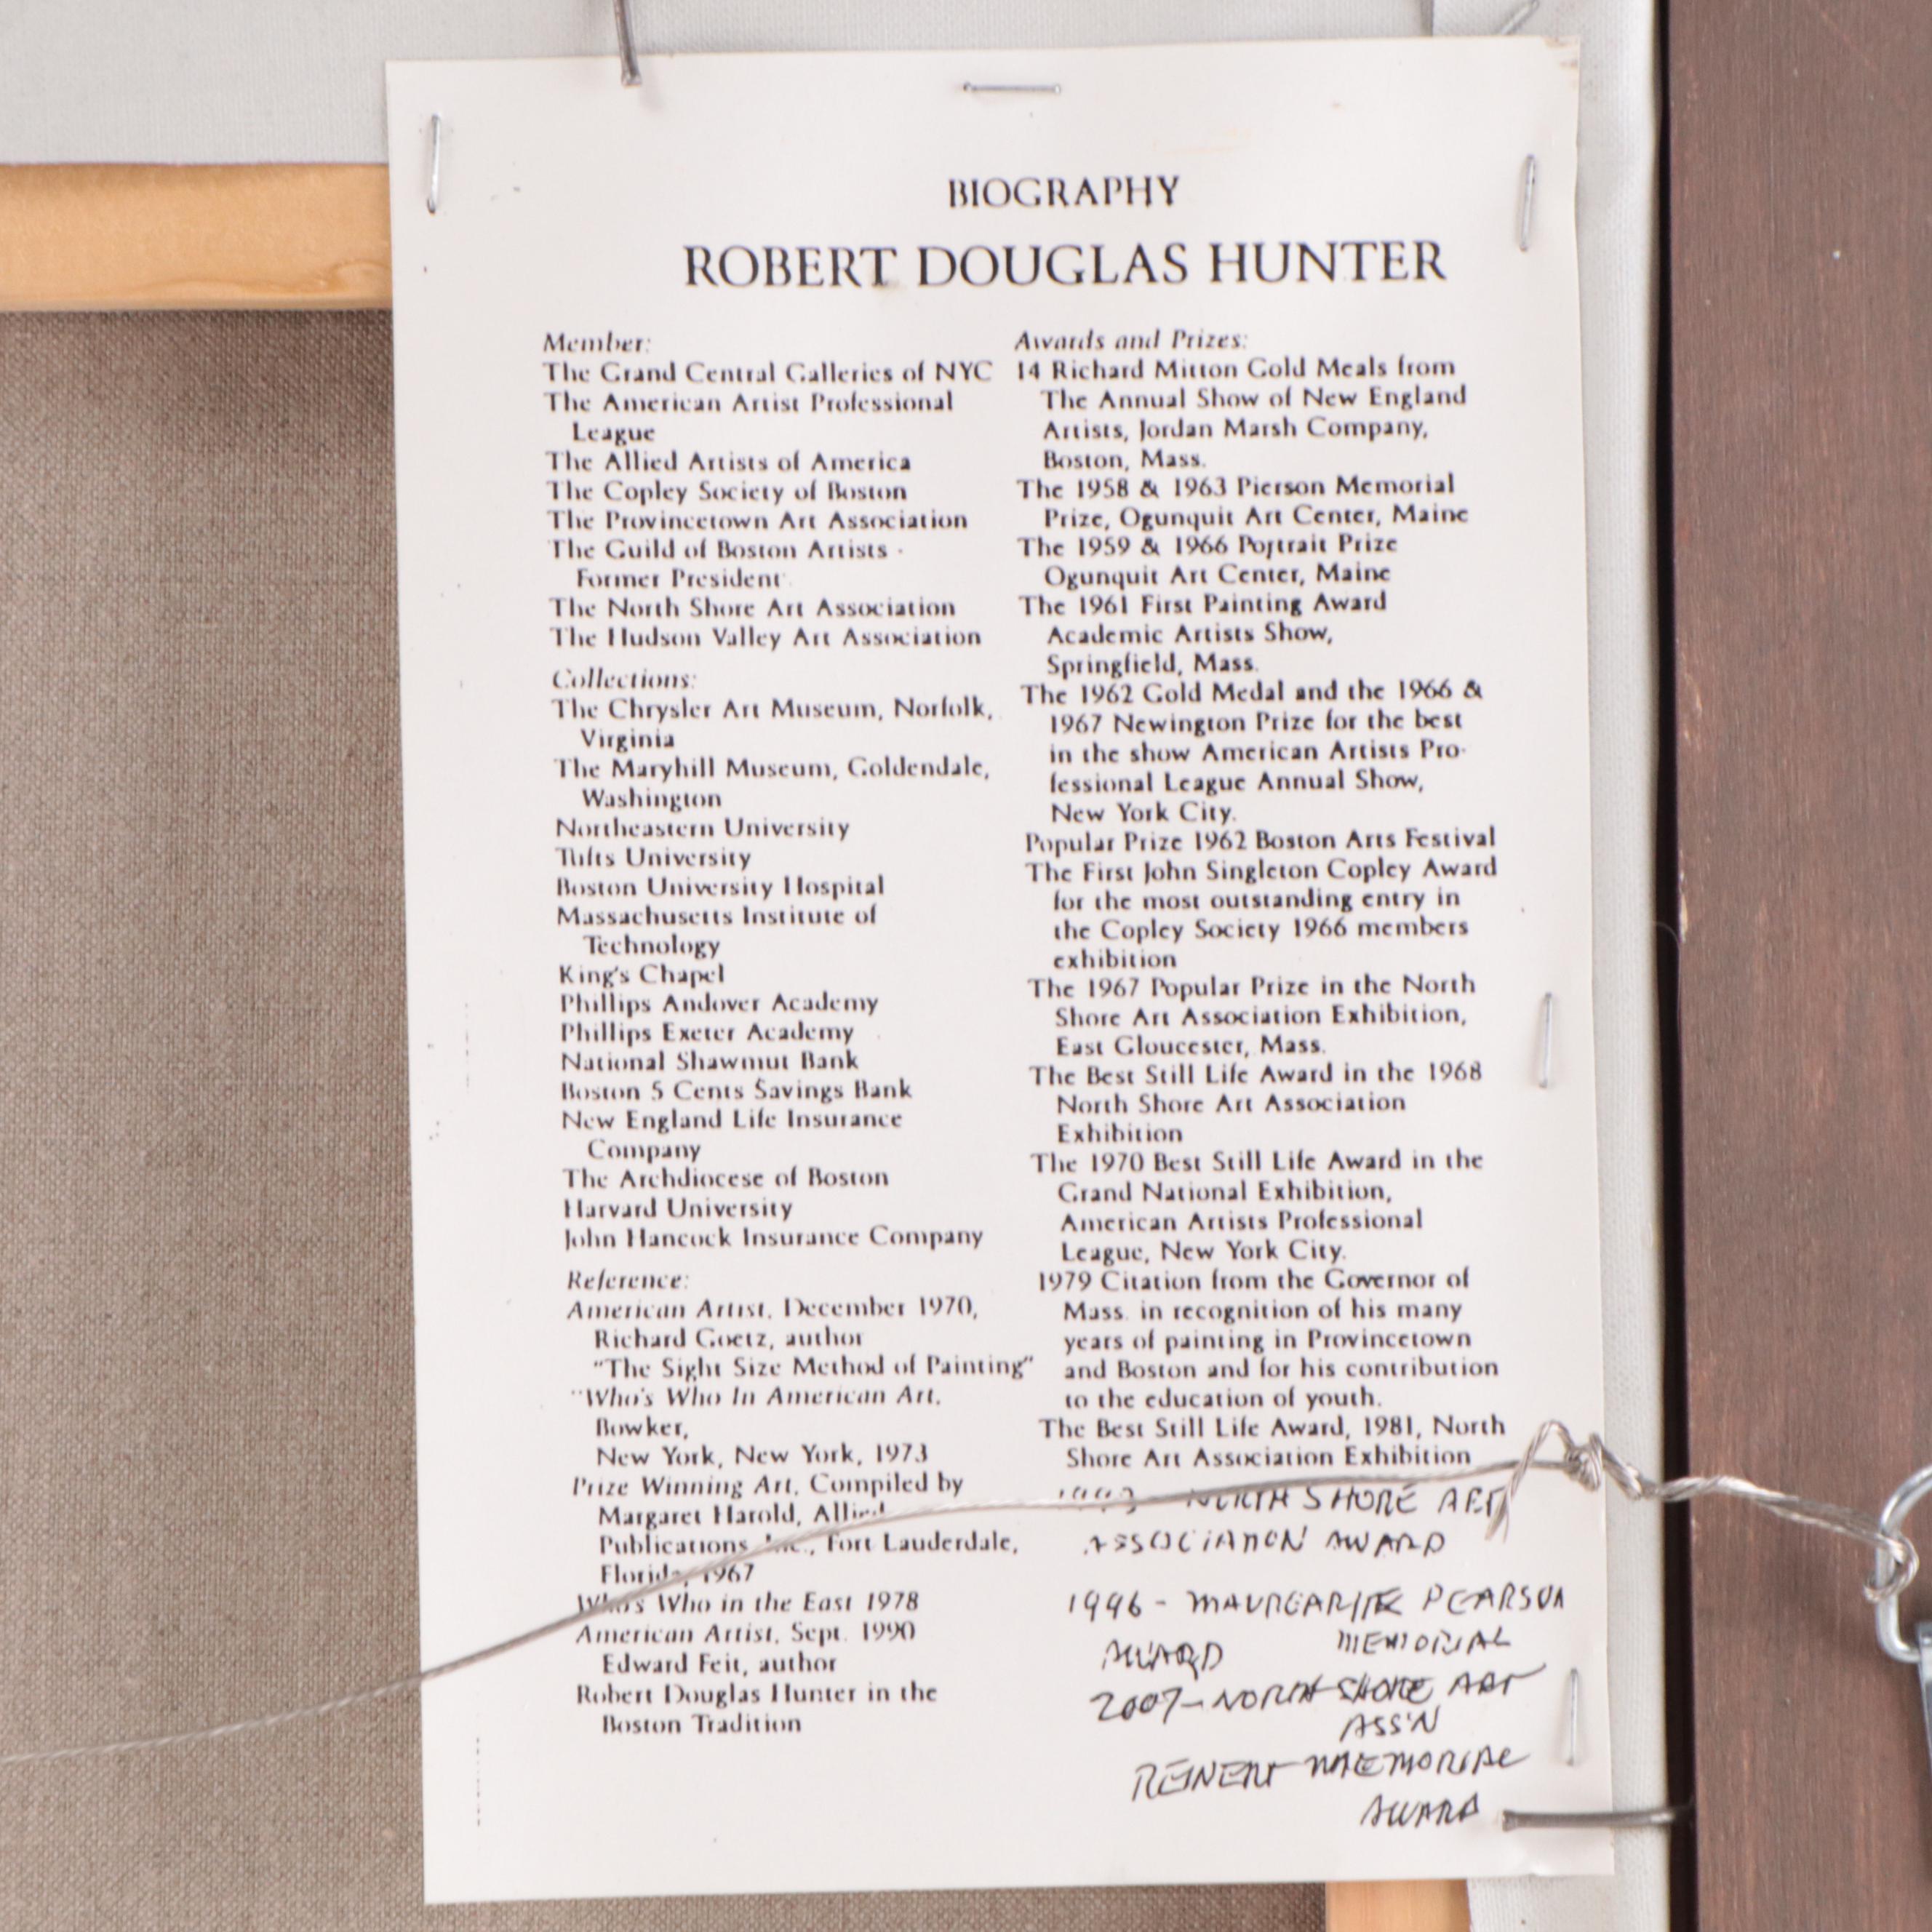 BIOGRAPHY
ROBERT DOUGLAS HUNTER
Member:
The Grand Central Galleries of NYC
The American Artist Professional
League
The Allied Artists of America
The Copley Society of Boston
The Provincetown Art Association
The Guild of Boston Artists -
Former President
The North Shore Art Association
The Hudson Valley Art Association
Collections:
The Chrysler Art Museum, Norfolk,
Virginia
The Maryhill Museum, Goldendale,
Washington
Northeastern University
Tufts University
Boston University Hospital
Massachusetts Institute of
Technology
King's Chapel
Phillips Andover Academy
Phillips Exeter Academy
National Shawmut Bank
Boston 5 Cents Savings Bank
New England Life Insurance
Company
The Archdiocese of Boston
Harvard University
John Hancock Insurance Company
Reference:
American Artist, December 1970,
Richard Goetz, author
"The Sight Size Method of Painting"
"Who's Who In American Art,
Bowker,
New York, New York, 1973
Prize Winning Art, Compiled by
Margaret Harold, Allied
Publications, Inc., Fort Lauderdale,
Florida, 1967
Who's Who in the East 1978
American Artist, Sept. 1990
Edward Feit, author
Robert Douglas Hunter in the
Boston Tradition
Awards and Prizes:
14 Richard Mitton Gold Meals from
The Annual Show of New England
Artists, Jordan Marsh Company,
Boston, Mass.
The 1958 & 1963 Pierson Memorial
Prize, Ogunquit Art Center, Maine
The 1959 & 1966 Portrait Prize
Ogunquit Art Center, Maine
The 1961 First Painting Award
Academic Artists Show,
Springfield, Mass.
The 1962 Gold Medal and the 1966 &
1967 Newington Prize for the best
in the show American Artists Pro-
fessional League Annual Show,
New York City.
Popular Prize 1962 Boston Arts Festival
The First John Singleton Copley Award
for the most outstanding entry in
the Copley Society 1966 members
exhibition
The 1967 Popular Prize in the North
Shore Art Association Exhibition,
East Gloucester, Mass.
The Best Still Life Award in the 1968
North Shore Art Association
Exhibition
The 1970 Best Still Life Award in the
Grand National Exhibition,
American Artists Professional
League, New York City.
1979 Citation from the Governor of
Mass. in recognition of his many
years of painting in Provincetown
and Boston and for his contribution
to the education of youth.
The Best Still Life Award, 1981, North
Shore Art Association Exhibition
NORTH SHORE ART
ASSOCIATION AWARD
1996 - PEARSON
AWARD MEMORIAL
2007 - NORTH SHORE ART
ASS'N
REINERT MAEMORIAL
AWARD